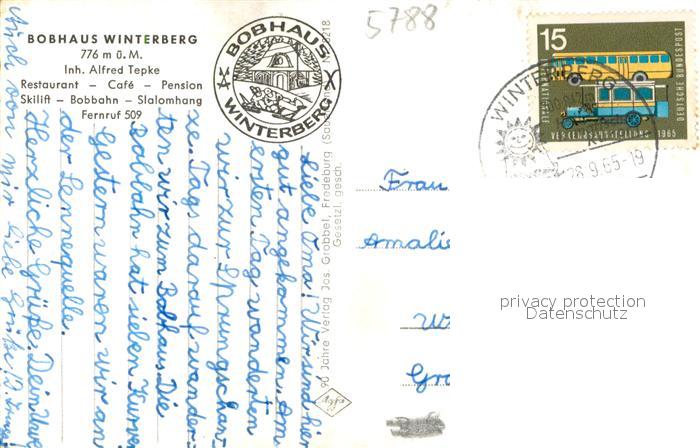 BOBHAUS WINTERBERG
776 m ü. M.
Inh. Alfred Tepke
Restaurant – Café – Pension
Skilift – Bobbahn – Slalomhang
Fernruf 509
BOBHAUS
WINTERBERG
5788
Liebe Oma! Wir sind hier
gut angekommen. Am
ersten Tag wanderten
wir zur Sprungschan-
ze. Tags darauf wander-
ten wir zum Bobhaus. Die
Bobbahn hat sieben Kurven
Gestern waren wir an
der Lennequelle.
Herzliche Grüße. Dein Uwe
Auch von mir liebe Grüße
90 Jahre Verlag Jos. Grobbel, Fredeburg
Gesetzl. gesch.
Agfa
Frau
Amalie
W
Gro
15
DEUTSCHE BUNDESPOST
INTERNATIONALE
VERKEHRSAUSSTELLUNG 1965
WINTERBERG
28.9.65-19
privacy protection
Datenschutz